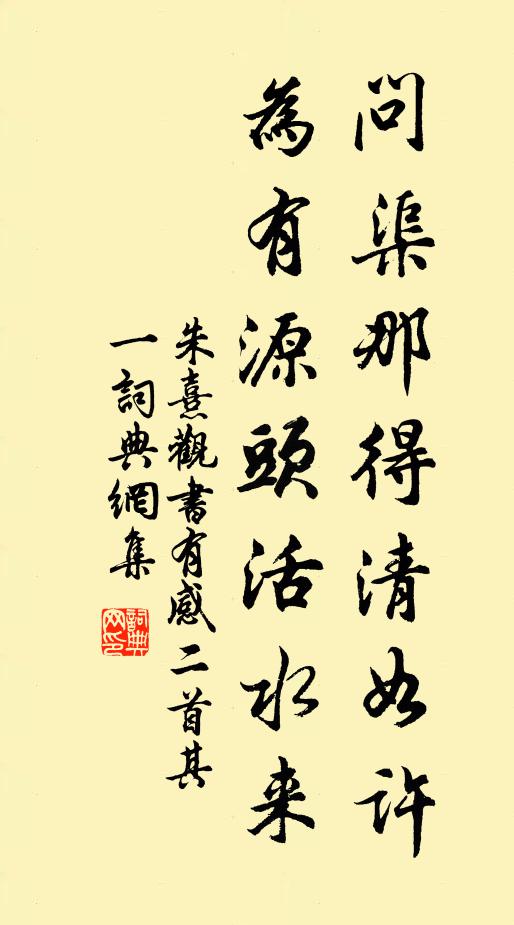 問渠那得清如許
為有源頭活水来
朱熹觀書有感二首其
一詞典網集
詞典網印